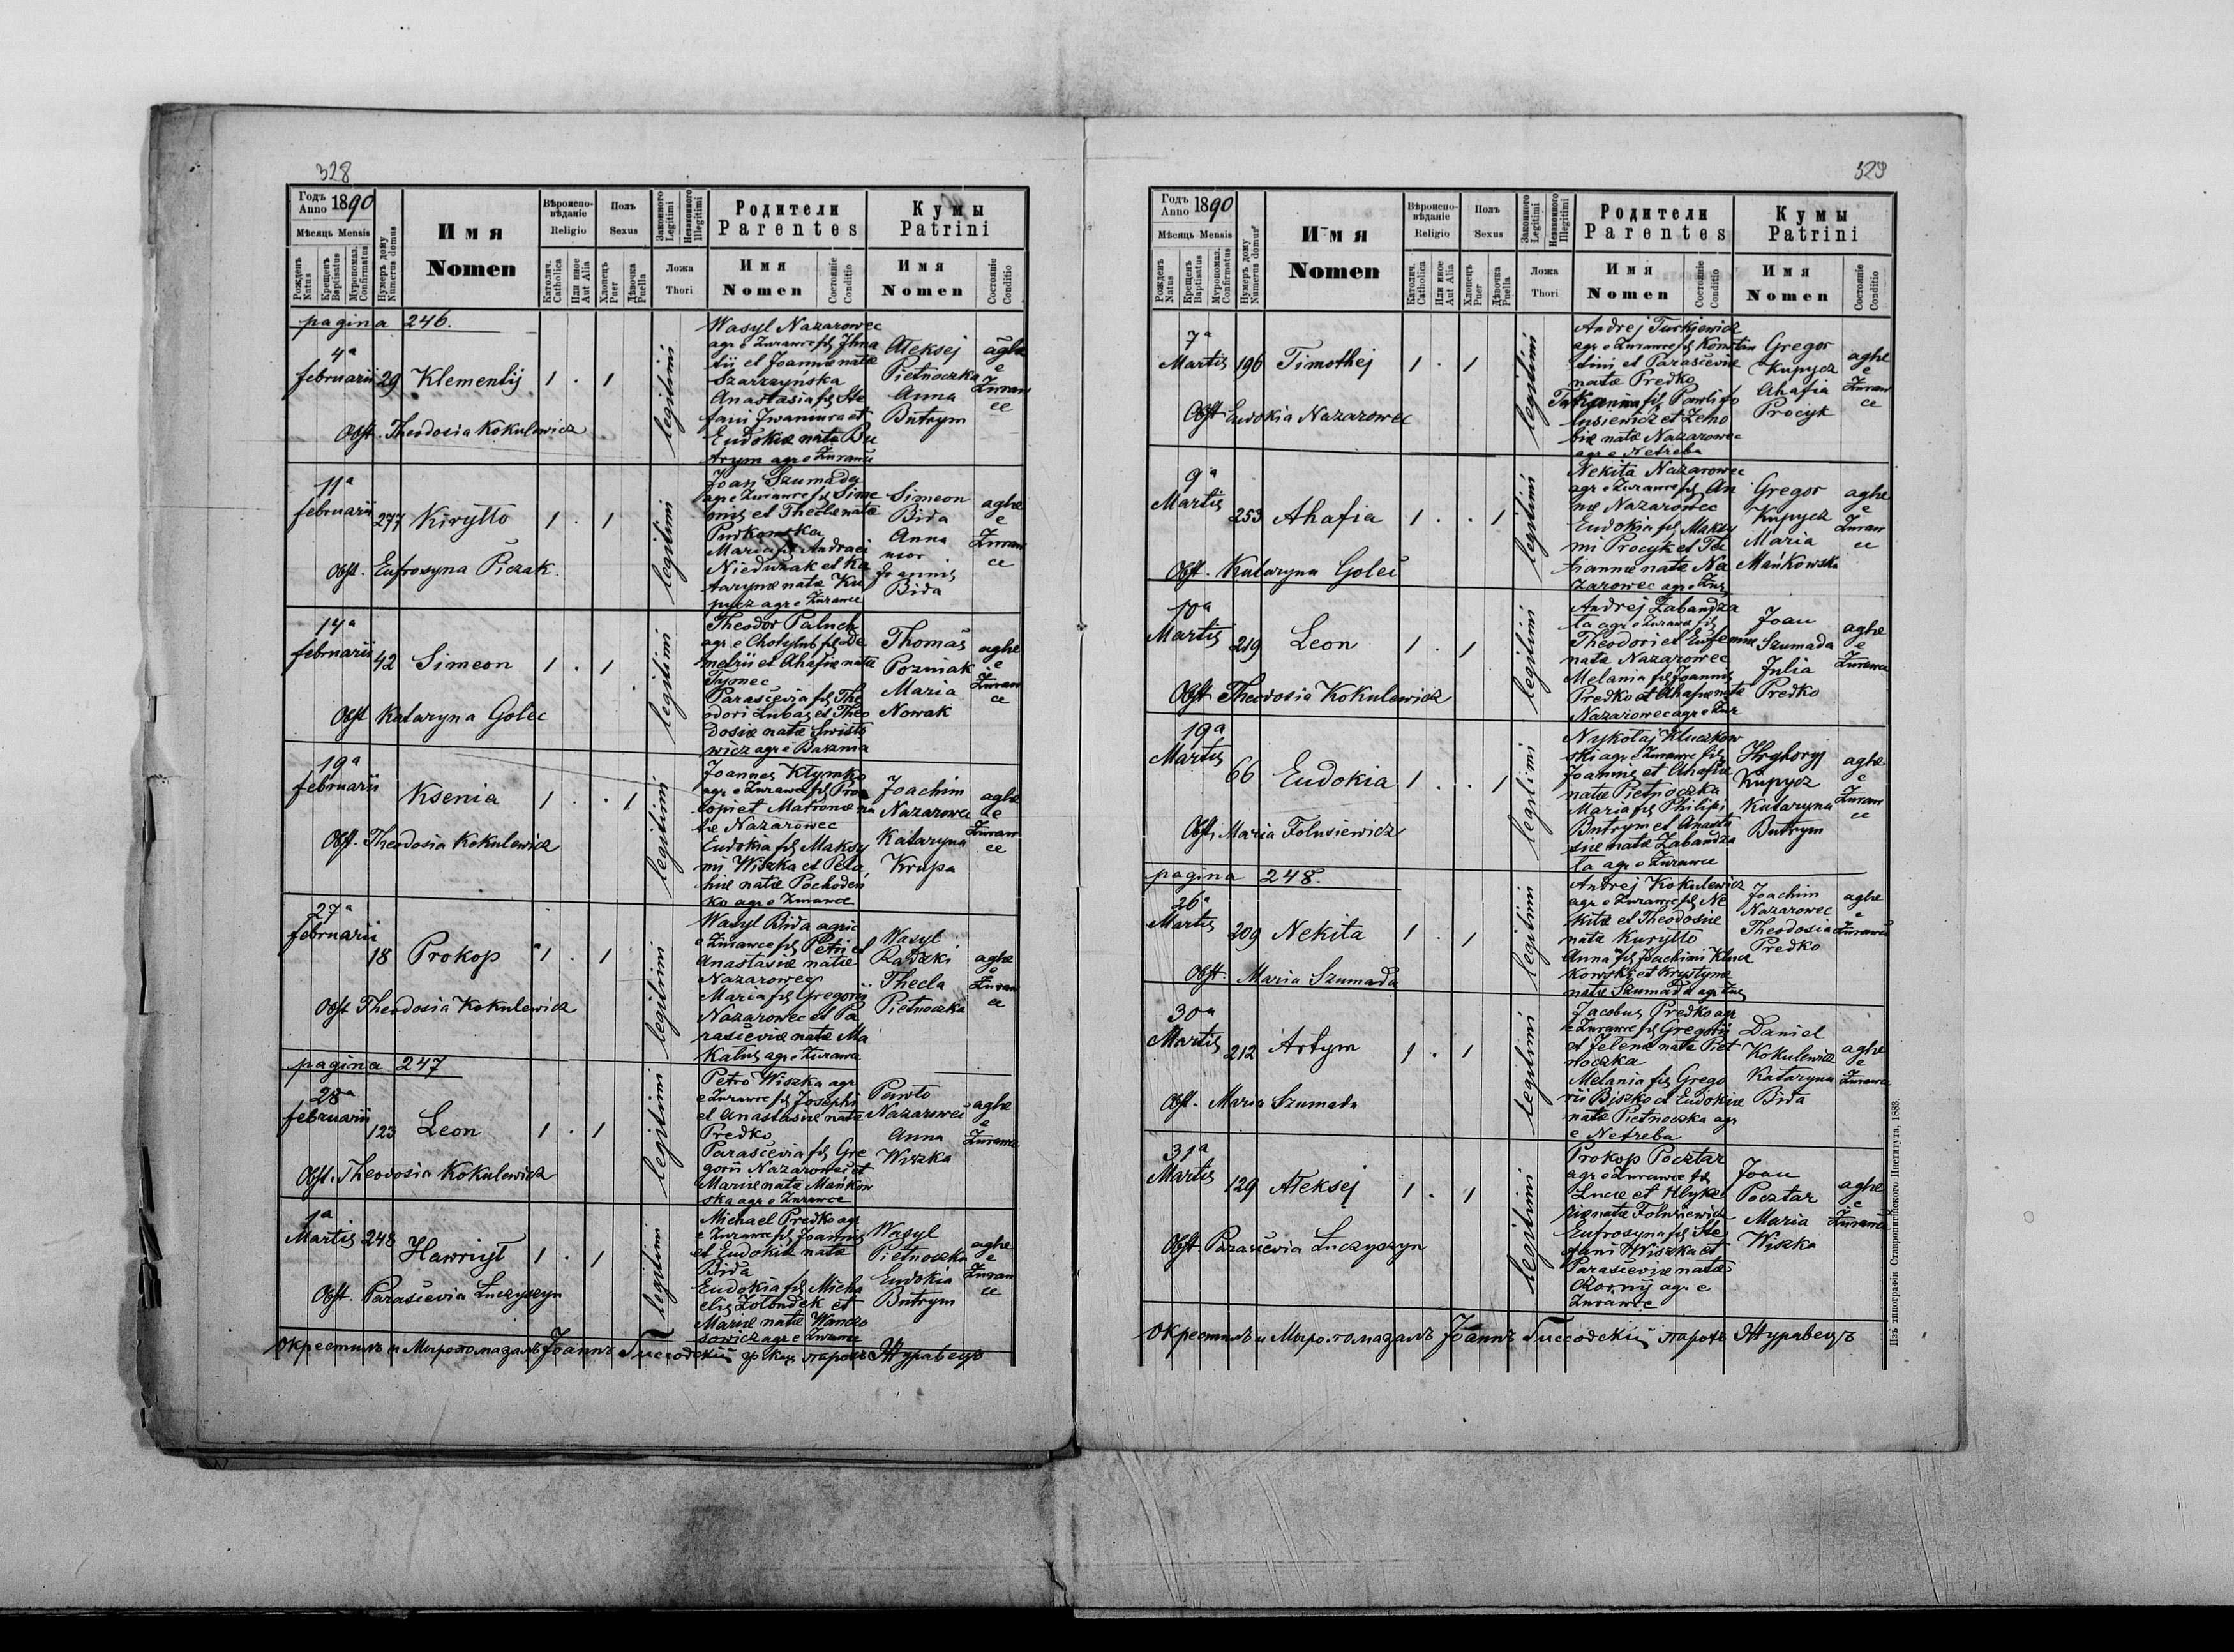 328
Годъ Anno 1890
Мѣсяць Mensis
Рожденъ Natus
Крещенъ Baptisatus
Муропомаз. Confirmatus
Нумеръ дому Numerus domus
Имя
Nomen
Вѣроиспо-
вѣданіе
Religio
Католич. Catholica
Или иное Aut Alia
Полъ
Sexus
Хлопецъ Puer
Дѣвочка Puella
Законного Legitimi
Незаконного Illegitimi
Ложа
Thori
Родители
Parentes
Имя
Nomen
Состояніе Conditio
Кумы
Patrini
Имя
Nomen
Состояніе Conditio
pagina 246.
4ª
februarii 29 Klementij 1 . 1
legitimi
Wasyl Nazarowec
agr e Żurawce fil Ihna
tii et Joannæ natæ
Szarzyńska
Anastasia fil Ste
fani Iwaniura et
Eudokiæ nata Bu
trym agr e Żurawce
Aleksej
Pietnoczka
Anna
Butrym
agke
e
Żuraw
ce
Obst. Theodosia Kokulewicz
11ª
februarii 277 Kiryłło 1 . 1
legitimi
Joan Szumada
agr e Żurawce fil Sime
onis et Theclæ natæ
Maria fil Andreci
Niedużak et Ka
tarynæ natæ Ku
pycz agr e Żurawce
Simeon
Bida
Anna
uxor
Joannis
Bida
agke
e
Żuraw
ce
Obst. Eufrosyna Piczak.
14ª
februarii 42 Simeon 1 . 1
legitimi
Theodor Paluch
agr e Chotylub fil De
metrii et Ahafiæ natæ
Parasœvia fil The
odori Lubas et Theo
dosiæ natæ Swisto
wicz agr e Basznia
Thomas
Pozniak
Maria
Nowak
agke
e
Żuraw
ce
Obst Kataryna Golec
19ª
februarii Ksenia 1 . . 1
legitimi
Joannes Kłymko
agr e Żurawce fil Pro
copi et Matronæ na
tæ Nazarowec
Eudokia fil Maksy
mi Wiszka et Pela
hiæ natæ Pochodeń
ko agr e Żurawce
Joachim
Nazarowec
Kataryna
Krupa
agke
e
Żuraw
ce
Obst. Theodosia Kokulewicz
27ª
februarii
18 Prokop 1 . 1
legitimi
Wasyl Bida agric
e Żurawce fil Petri et
Anastasiæ natæ
Nazarowec
Maria fil Gregorii
Nazarowec et Pa
rascieviæ nata Ma
kałus agr e Żurawce
Wasyl
Radzki
Thecla
Pietnoczka
agke
e
Żuraw
ce
Obst Theodosia Kokulewicz
pagina 247
28ª
februarii
123 Leon 1 . 1
legitimi
Petro Wiszka agr
e Żurawce fil Josephi
et Anastasiæ nata
Predko
Parascievia fil Gre
gorii Nazarowec et
Mariæ nata Mańkow
ska agr e Żurawce
Pawło
Nazarowec
Anna
Wiszka
agke
e
Żurawce
Obst. Theodosia Kokulewicz
1ª
Martis 248 Hawryił 1 . 1
legitimi
Michael Predko agr
e Żurawce fil Joannis
et Eudokiæ natæ
Bida
Eudokia fil Micha
elis Żołondek et
Mariæ natæ Wando
sowicz agr e Żurawce
Wasyl
Pietnoczka
Eudokia
Butrym
agke
e
Żuraw
ce
Obst. Parascievia Łuczyszyn
окрестилъ и Миропомазалъ Іоаннъ парохъ Журавецъ
329
Годъ Anno 1890
Мѣсяць Mensis
Рожденъ Natus
Крещенъ Baptisatus
Муропомаз. Confirmatus
Нумеръ дому Numerus domus
Имя
Nomen
Вѣроиспо-
вѣданіе
Religio
Католич. Catholica
Или иное Aut Alia
Полъ
Sexus
Хлопецъ Puer
Дѣвочка Puella
Законного Legitimi
Незаконного Illegitimi
Ложа
Thori
Родители
Parentes
Имя
Nomen
Состояніе Conditio
Кумы
Patrini
Имя
Nomen
Состояніе Conditio
7ª
Martis 196 Timothej 1 . 1
legitimi
Andrej Turkiewicz
agr e Żurawce fil Konstan
tini et Parascieviæ
natæ Predko
Tatianna fil Pawli Fo
lusiewicz et Zeno
biæ natæ Nazarowec
agr e Netreba
Gregor
Kupycz
Ahafia
Procyk
agke
e
Żuraw
ce
Obst Eudokia Nazarowec
9ª
Martis 253 Ahafia 1 . . 1
legitimi
Nekita Nazarowec
agr e Żurawce fil An
næ Nazarowec
Eudokia fil Maksy
mi Procyk et Ta
tiannæ natæ Na
zarowec agr e Żur
Gregor
Kupycz
Maria
Mańkowska
agke
e
Żuraw
ce
Obst. Kataryna Golec
10ª
Martis 219 Leon 1 . 1
legitimi
Andrej Zabandża
ta agr e Żurawce fil
Theodori et Eufemiæ
natæ Nazarowec
Melania fil Joannis
Predko et Ahafiæ natæ
Nazarowec agr e Żur
Joan
Szumada
Julia
Predko
agke
e
Żurawce
Obst Theodosia Kokulewicz
19ª
Martis 66 Eudokia 1 . . 1
legitimi
Nykołaj Kluczkow
ski agr e Żurawce fil
Joannis et Ahafiæ
natæ Pietnoczka
Maria fil Philipi
Butrym et Anasta
siæ natæ Zabandża
ta agr e Żurawce
Hryhoryj
Kupycz
Kataryna
Butrym
agke
e
Żuraw
ce
Obst. Maria Folusiewicz
pagina 248.
26ª
Martis 209 Nekita 1 . 1
legitimi
Andrej Kokulewicz
agr e Żurawce fil Ne
kitæ et Theodosiæ
natæ Kuryłło
Anna fil Joachimi Klucz
kowski et Krystynæ
natæ Szumada agr Żur
Joachim
Nazarowec
Theodosia
Predko
agke
e
Żurawce
Obst. Maria Szumada
30ª
Martis 212 Artym 1 . 1
legitimi
Jacobus Predko agr
e Żurawce fil Gregorij
et Jelenæ natæ Piet
noczka
Melania fil Grego
rii Biszko et Eudokiæ
natæ Pietnoczka agr
e Netreba
Daniel
Kokulewicz
Kataryna
Bida
agke
e
Żurawce
Obst. Maria Szumada
31ª
Martis 129 Aleksej 1 . 1
legitimi
Prokop Pocztar
agr e Żurawce fil
Lucæ et Hlyke
riæ natæ Folusiewicz
Eufrosyna fil Ste
fani Wiszka et
Parascieviæ natæ
Czornij agr e
Żurawce
Joan
Pocztar
Maria
Wiszka
agke
e
Żurawce
Obst. Parascievia Łuczyszyn
окрестилъ и Миропомазалъ Іоаннъ парохъ Журавецъ
Изъ типографіи Ставропигійского Института, 1883.